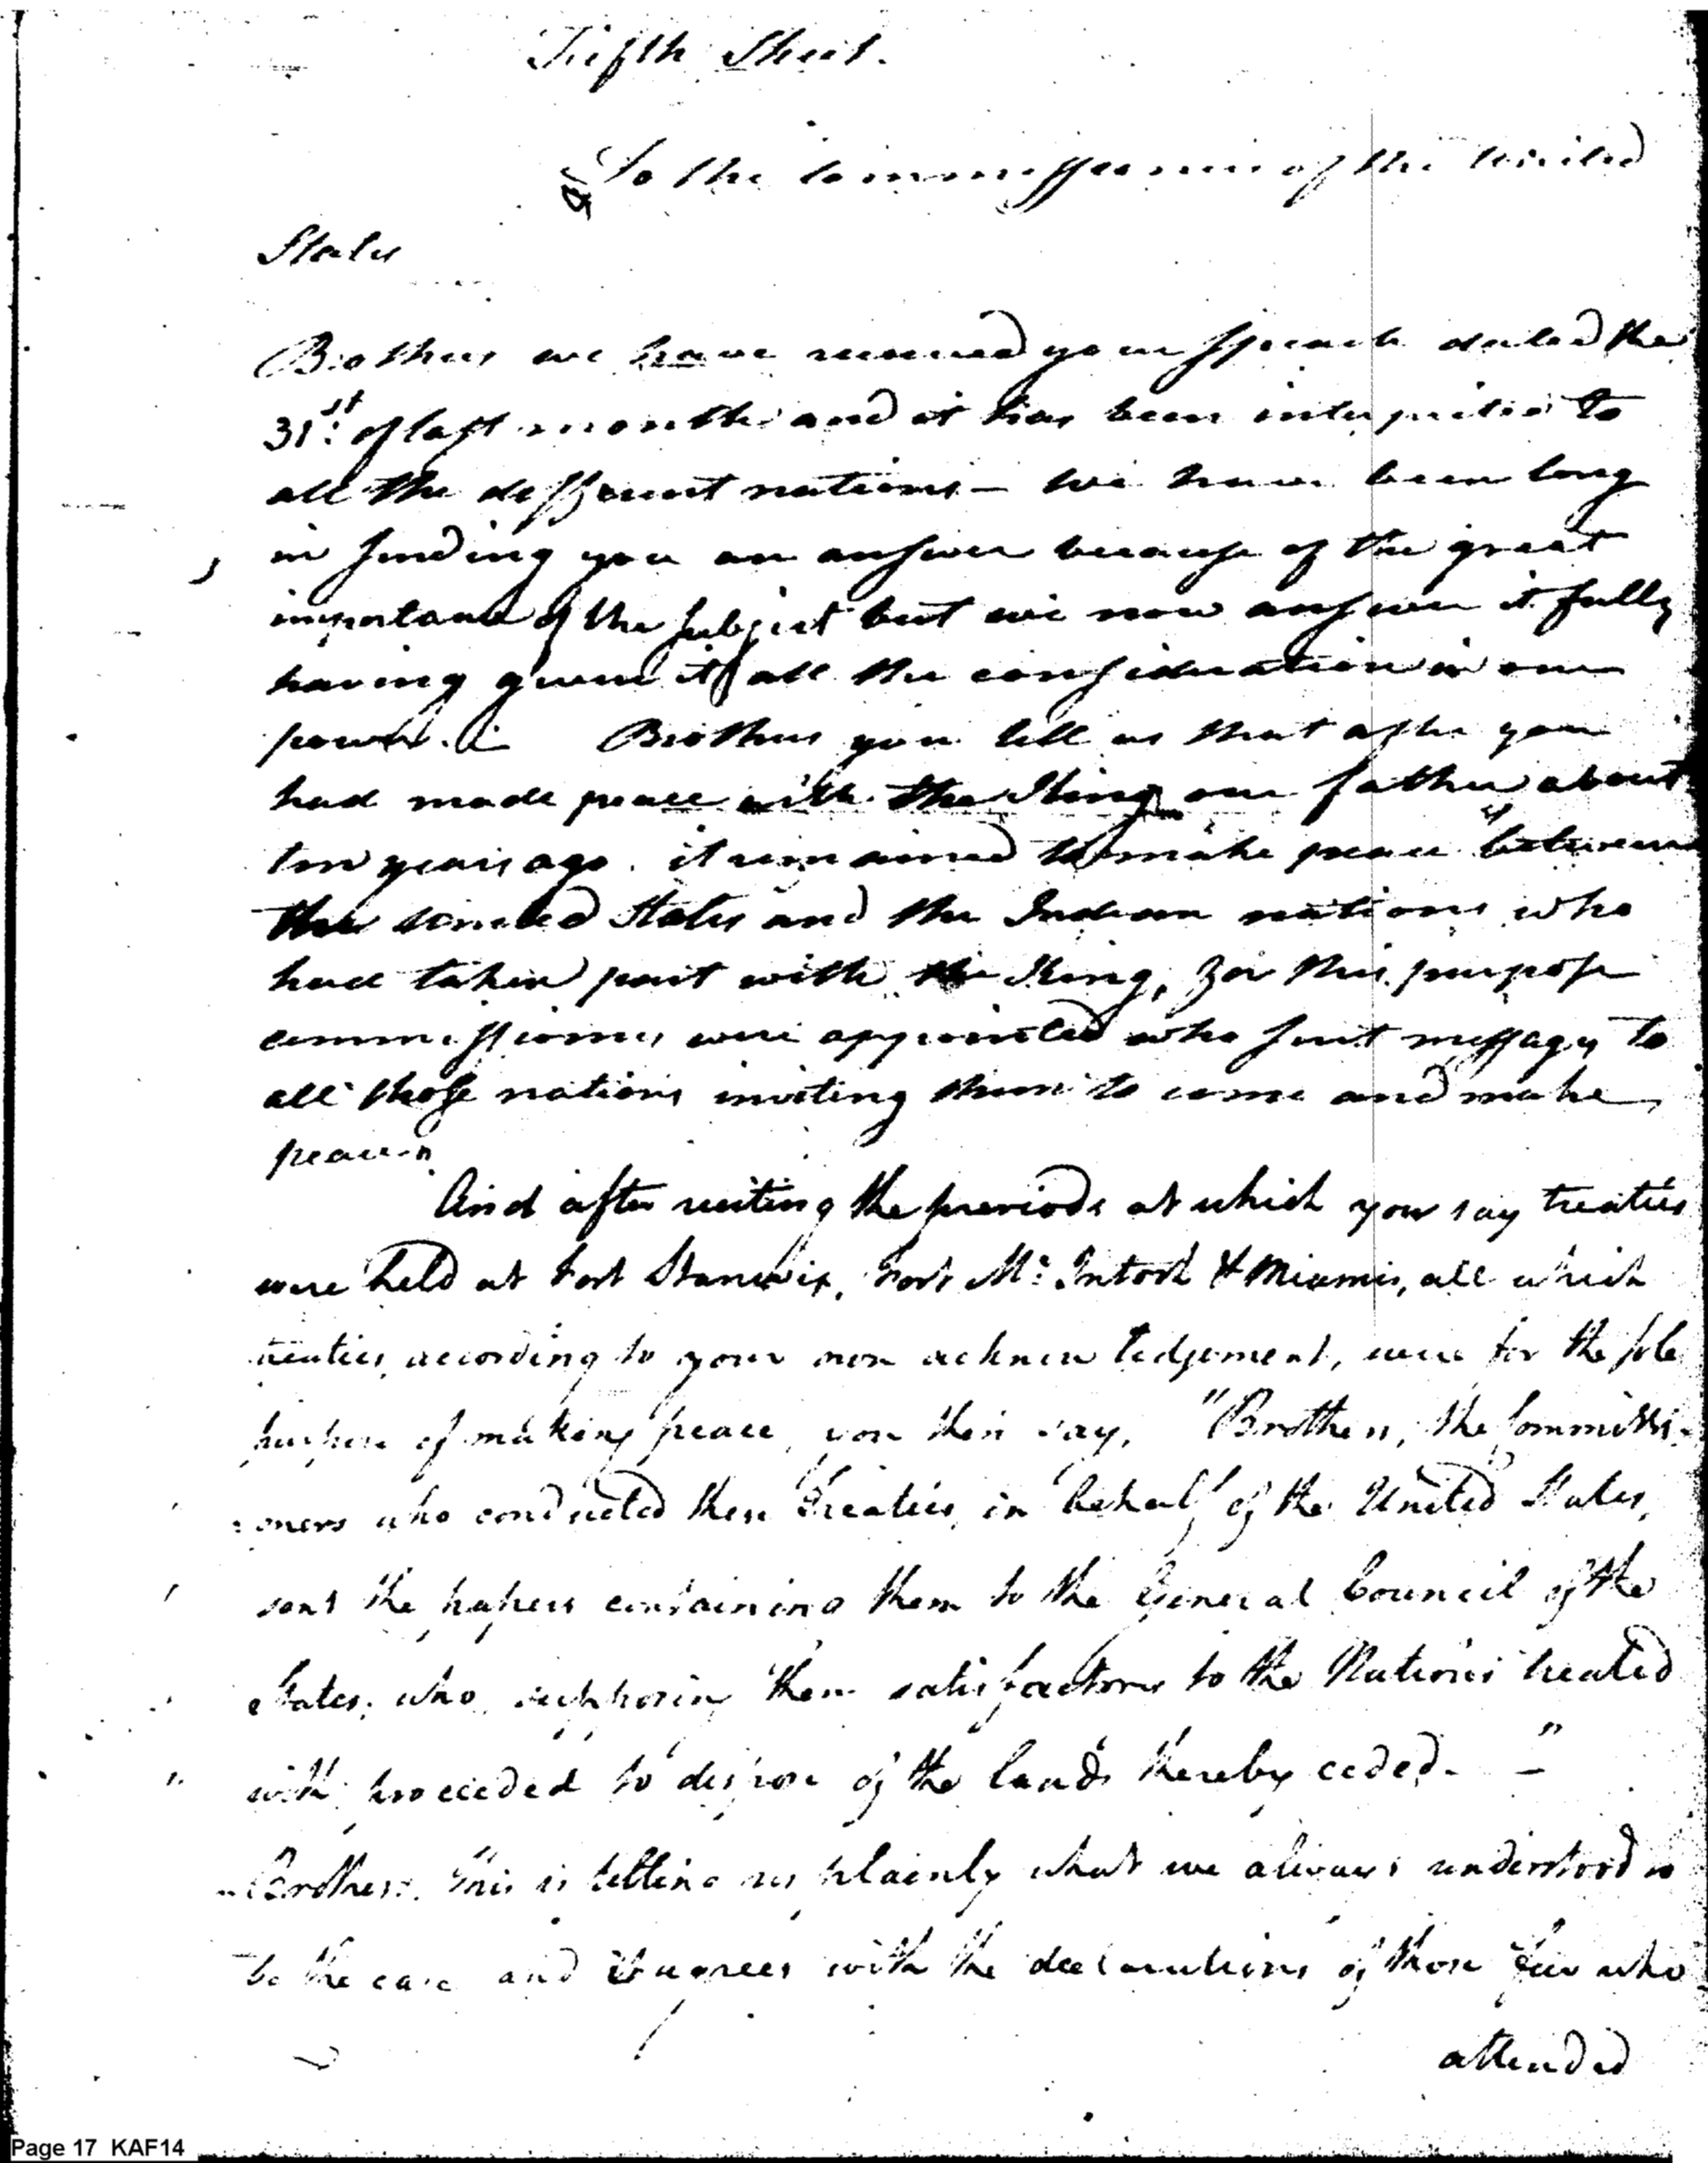 Fifth Sheet.
To the Commissioners of the United
States
Brothers we have received your speech dated the
31st of last month and it has been interpreted to
all the different nations — we have been long
in sending you an answer because of the great
importance of the subject but we now answer it fully
having given it all the consideration in our
power. Brothers you tell us that after you
had made peace with the King our father about
ten years ago. it remained to make peace between
the United States and the Indian nations who
had taken part with the King, For this purpose
commissioners were appointed who sent messages to
all those nations inviting them to come and make
peace"
And after reciting the periods at which you say treaties
were held at Fort Stanwix, Fort Mc Intosh & Miamis, all which
treaties, according to your own acknowledgement, were for the sole
purpose of making peace, you then say, "Brothers, the Commissi-
:oners who conducted these Treaties, in behalf of the United States,
sent the papers containing them to the General Council of the
States, who, supposing them satisfactory to the Nations treated
with, proceeded to dispose of the lands thereby ceded. — "
Brothers. This is telling us plainly what we always understood to
be the case and it agrees with the declarations of those few who
attended
Page 17 KAF14